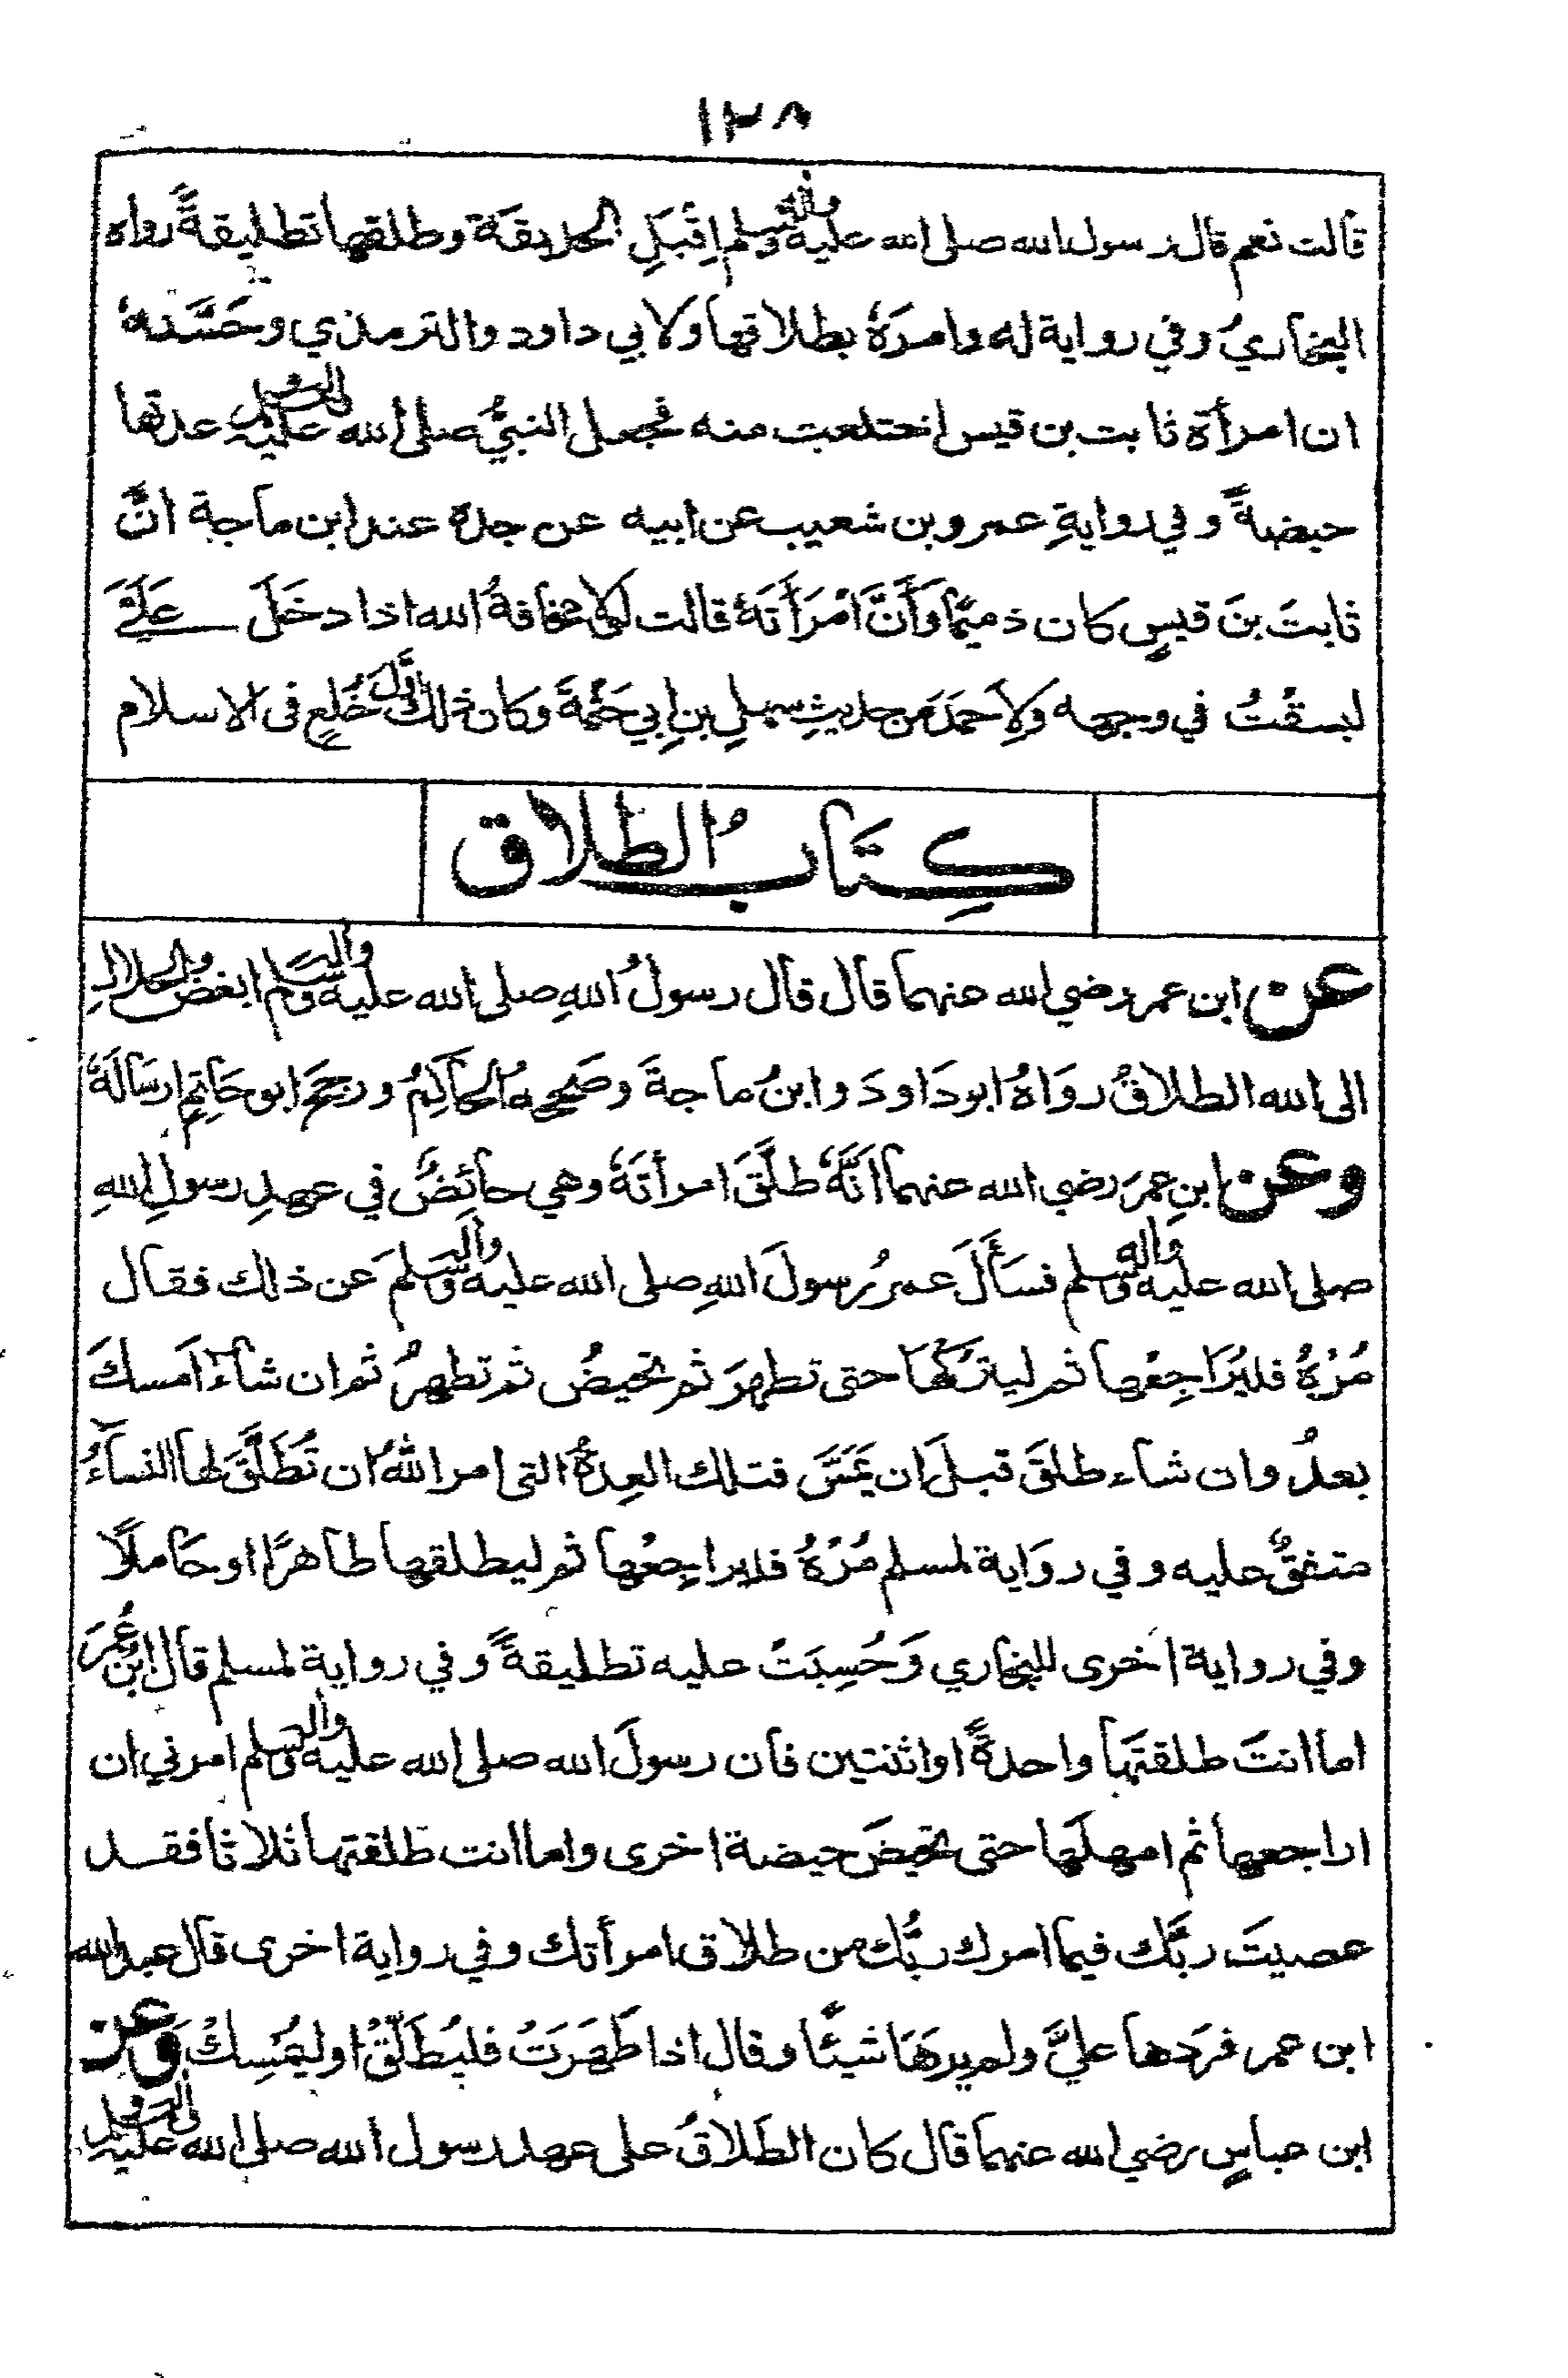 ١٢٨
قالت نعم قال رسول الله صلى الله عليه وآله وسلم اِقْبَلِ الحديقة وطلقها تطليقةً رواه
البخاريُ وفي رواية له وامرَهُ بطلاقها ولابي داود والترمذي وحَسَّنه
ان امرأة ثابت بن قيس اختلعت منه فجعل النبيُّ صلى الله عليه وآله وسلم عدتها
حيضةً وفي روايةِ عمرو بن شعيب عن ابيه عن جده عند ابن ماجة انَّ
ثابتَ بنَ قيسٍ كان ذميمًا وَأَنَّ امْرَأَتَهُ قالت لولا مخافةُ الله اذا دخَلَ عَلَيَّ
لبسقْتُ في وجهه ولِاَحمَدَ من حديثِ سهلِ بنِ ابي حَثْمَةَ وكان ذلك اَوَّلَ خُلعٍ فى الاسلام
كِتَابُ الطلاق
عن ابن عمر رضي الله عنهما قال قال رسولُ اللهِ صلى الله عليه وآله وسلم ابغضُ الحلال
الى الله الطلاقُ روَاهُ ابو دَاودَ وابنُ ماجةَ وصَححهُ الحاكِمُ ورجحَ ابو حَاتِمٍ ارسَالَهُ
وعن ابنِ عمرَ رضي الله عنهما انَّهُ طلَّقَ امرأتَهُ وهي حائِضٌ في عهدِ رسولِ اللهِ
صلى الله عليه وآله وسلم فسَأَلَ عمرُ رسولَ اللهِ صلى الله عليه وآله وسلم عَن ذلك فقال
مُرْهُ فليُرَاجِعْها ثم ليترُكْهَا حتى تطهرَ ثم تحيضُ ثم تطهرُ ثم ان شاءَ اَمسكَ
بعدُ وان شاء طلقَ قبلَ ان يَمَسَّ فتلك العِدةُ التى امر اللهُ ان تُطَلَّقَ لها النساءُ
متفقٌ عليه وفي روَاية لمسلم مُرْهُ فليراجِعْها ثم ليطلقها طاهرًا او حَاملًا
وفي رواية اخرى للبخاري وَحُسِبَتْ عليه تطليقةً وفي رواية لمسلم قال ابنُ عُمَرَ
اما انتَ طلقتَها واحدةً او اثنتين فان رسولَ الله صلى الله عليه وآله وسلم امرني ان
اراجعها ثم امهلَها حتى تحيضَ حيضة اخرى واما انت طلقتها ثلاثا فقد
عصيتَ ربَّك فيما امرك ربُّك من طلاق امرأتك وفي رواية اخرى قال عبد الله
ابن عمر فرَدها عليَّ ولم يرهَا شيئًا وقال اذا طَهَرَتْ فليُطَلِّقْ او ليُمْسِكْ وَعن
ابن عباسٍ رضي الله عنهما قال كان الطَلاقُ على عهد رسول الله صلى الله عليه وآله وسلم